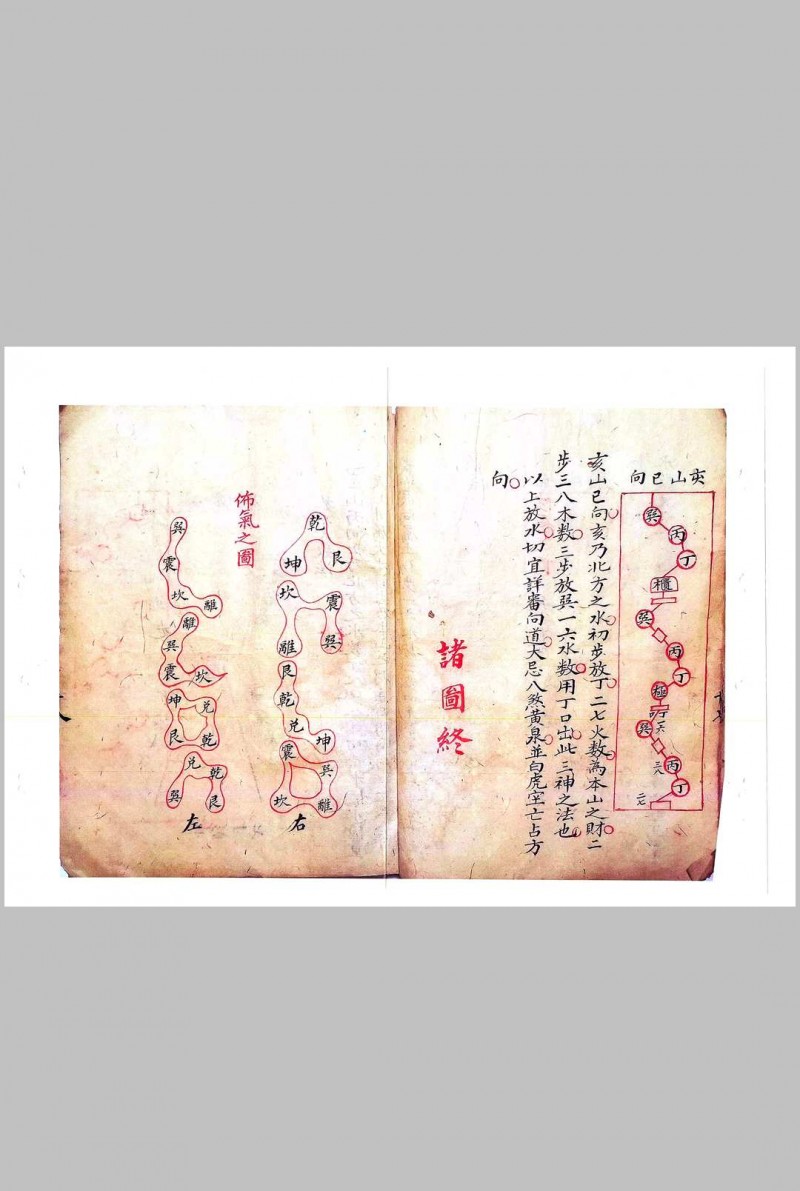 亥山巳向
巽
丙
丁
櫃
巽
丙
丁
極
巽
一六
三八
丙
丁
二七
亥山巳向亥乃北方之水初步放丁二七火数為本山之財二
步三八木数三步放巽一六水数用丁口出此三神之法也
以上放水切宜詳審向道大忌八煞黃泉並白虎空亡占方
向
諸圖終
佈氣之圖
乾
坤 艮
坎 震
離 巽
艮
乾
兌
震 坤
巽
坎 離
右
巽
震
坎 離
離
巽
震 坎
坤 兌
艮 乾
兌 乾
巽 艮
左